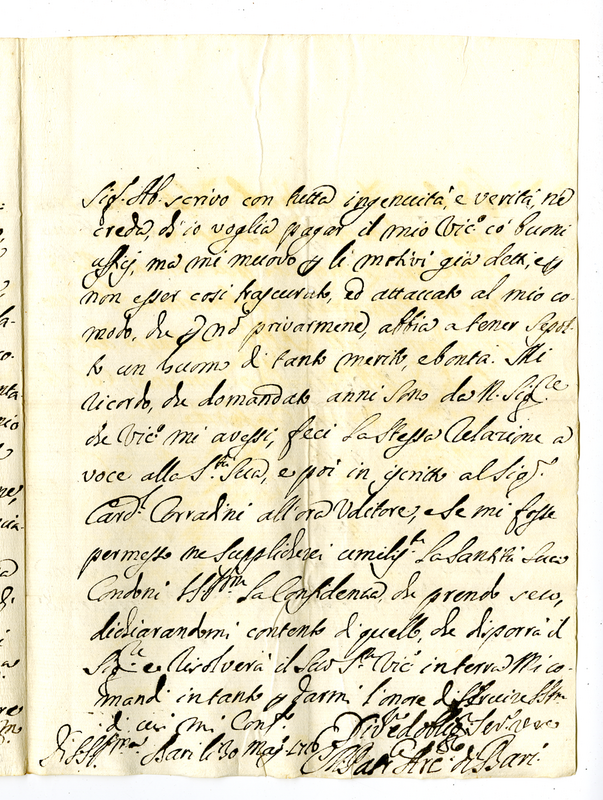 Sig.r Ab. scrivo con tutta ingenuità, e verità, ne
creda, ch'io voglia pagar il mio Vic.o co' buoni
uffizj, ma mi muovo p li motivi già detti, e p
non esser così trascurato, ed attaccato al mio co-
modo, che p nō privarmene, abbia a tener sepol-
to un huomo di tanto merito, e bontà. Mi
ricordo, che domandato anni sono da N. Sig.re
che Vic.o mi avessi, feci la stessa relazione a
voce alla S.tà Sua, e poi in iscritto al Sig.r
Card.l Corradini all'ora Uditore, e se mi fosse
permesso ne supplicherei umiliss.te la Santità Sua
Condoni VS Ill.ma la Confidenza, che prendo seco,
dichiarandomi contento di quello, che disporrà il
Sig.re e risolverà il suo S.to Vic.o in terra Mi co-
mandi intanto p darmi l'onore di servire
di cui mi Conf.o
Div.mo ed obblig.mo Ser.re vero
Bari li 30 Mag.o
Arc.o di Bari